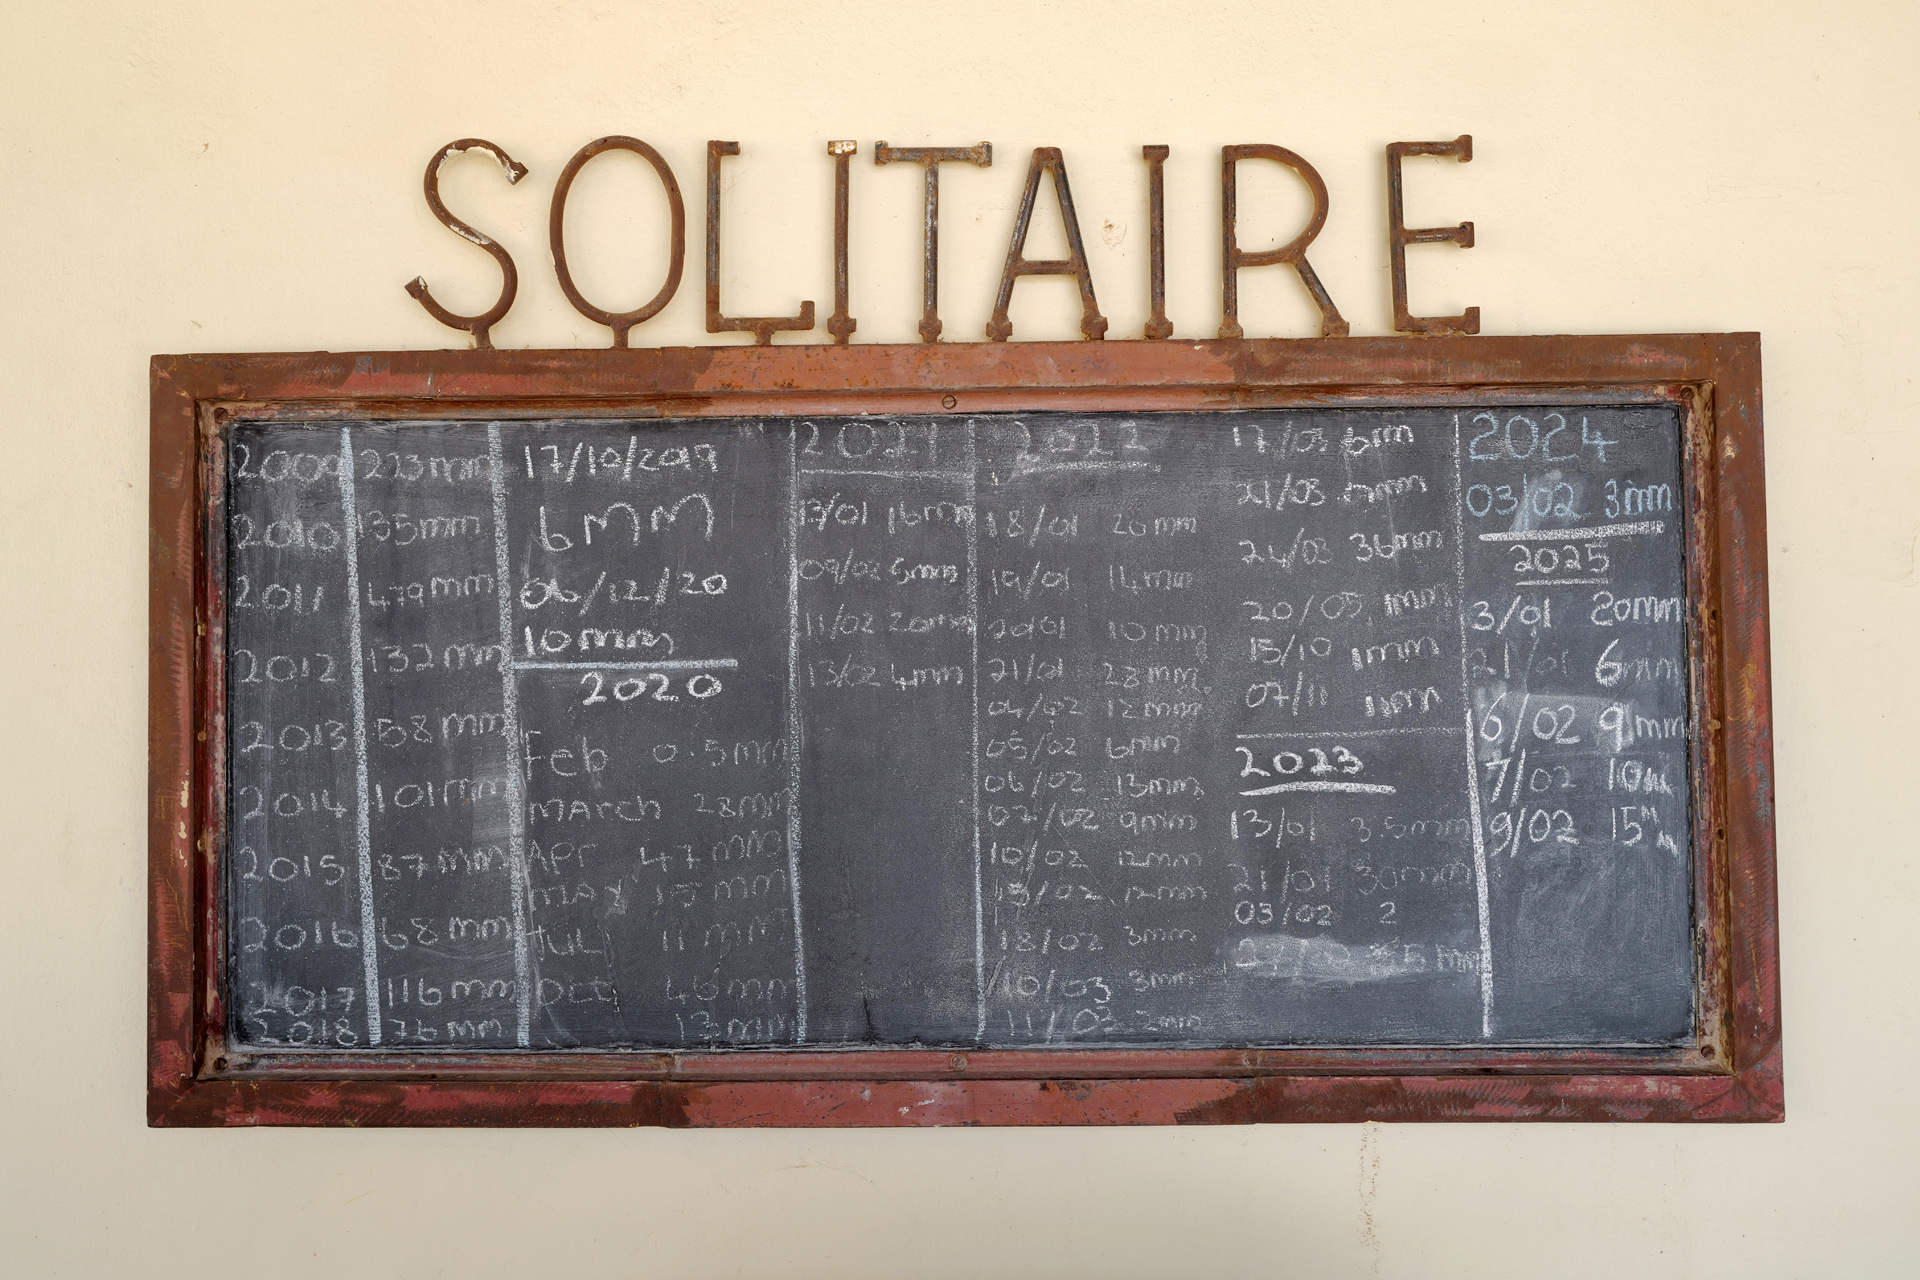 SOLITAIRE
2009 223mm
2010 135mm
2011 479mm
2012 132mm
2013 58mm
2014 101mm
2015 87mm
2016 68mm
2017 116mm
2018 76mm
17/10/2019
6MM
06/12/20
10mm
2020
Feb 0.5mm
MARCH 28mm
Apr 47mm
MAY 15mm
JUL 11mm
46mm
13mm
2021
13/01 16mm
09/02 5mm
11/02 20mm
13/02 4mm
2022
18/01 26mm
19/01 14mm
20/01 10mm
21/01 28mm
04/02 12mm
05/02 6mm
06/02 13mm
07/02 9mm
10/02 12mm
15/02 12mm
18/02 3mm
10/03 3mm
11/03 2mm
17/03 6mm
21/03
24/03 36mm
20/05 1mm
15/10 1mm
07/11
2023
13/01 3.5mm
21/01 30mm
03/02 2
mm
2024
03/02 3mm
2025
3/01 20mm
21/01 6mm
6/02 9mm
7/02 10mm
9/02 15mm